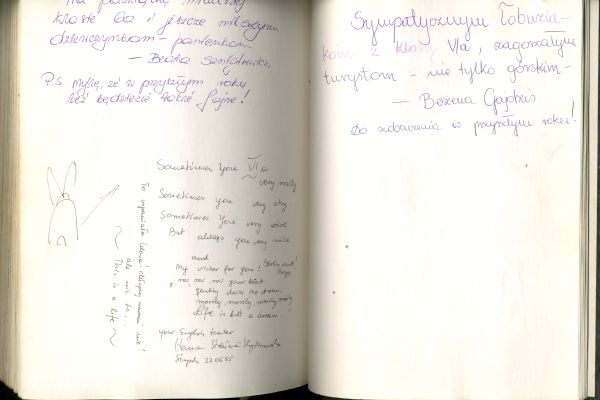 klasie 6a i jeszcze milszym
dziewczynkom - panienkom
— Beata
P.S Myślę, że w przyszłym roku
też będziecie takie fajne!
Sometimes you VI a
very nasty
Sometimes you very shy...
Sometimes you very wise
But always you very nice
and
My wishes for you: Girls and Boys!
row row row your boat
gently down the stream
merrily, merrily, merrily
Life is but a dream...!
your English teacher
Hanna
Słupsk 22.06.95
ale nic to.
~ This is a life ~
Sympatycznym Łobuzia-
kom z klasy VIa, zagorzałym
turystom - nie tylko górskim -
— Bożena
Do zobaczenia w przyszłym roku!